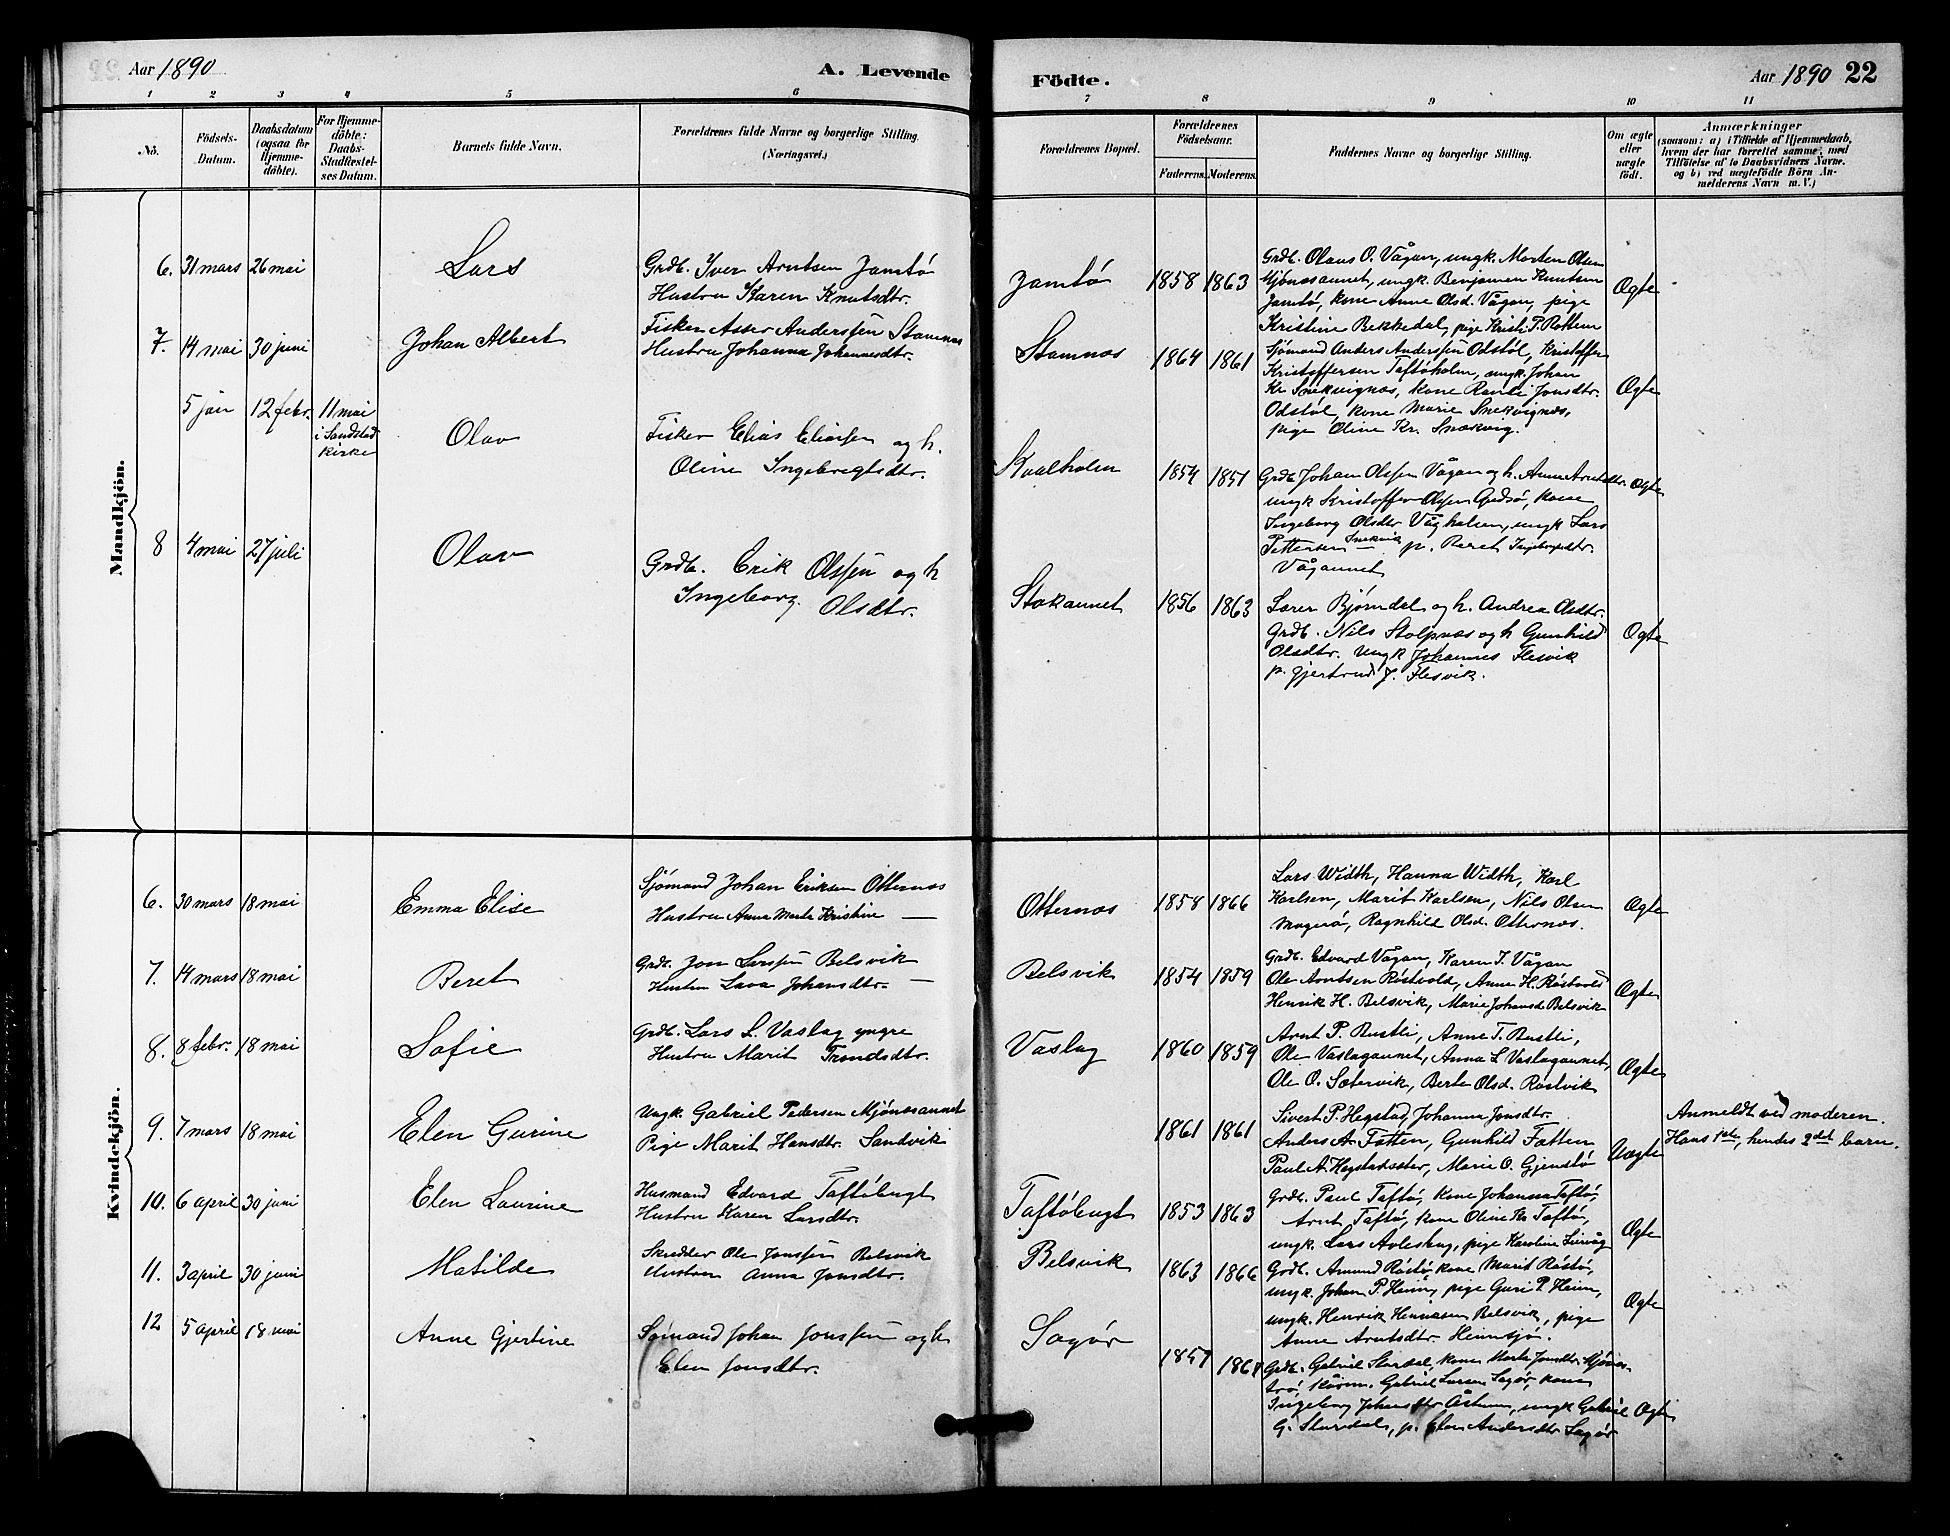 Aar 1890
A. Levende
1 2 3 4 5 6
No.
Födsels-
Datum.
Daabsdatum
(ogsaa for
Hjemme-
döbte).
For Hjemme-
döbte:
Daabs-
Stadfæstel-
ses Datum.
Barnets fulde Navn.
Forældrenes fulde Navne og borgerlige Stilling.
(Næringsvei.)
Mandkjön.
6. 31 mars 26 mai
Lars
Grdb. Iver Arntsen Jamtö
Hustru Karen Knutsdtr.
7. 14 mai 30 juni
Johan Albert
Fisker Asser Anderssen Stamnes
Hustru Johanna Johannesdtr.
5 jan 12 febr. 11 mai
i Sandstad
Kirke
Olav
Fisker Elias Eliassen og h.
Oline Ingebregtsdtr.
8 4 mai 27 juli
Olav
Grdb. Erik Olssen og h
Ingeborg Olsdtr.
Kvindekjön.
6. 30 mars 18 mai
Emma Elise
Sjömand Johan Eriksen Otternæs
Hustru Anna Marta Kristine —
7. 14 mars 18 mai
Beret
Grdb. Jon Larssen Belsvik
Hustru Lava Johansdtr. —
8. 8 febr. 18 mai
Sofie
Grdb. Lars L. Vaslag yngre
Hustru Marit Trondsdtr.
9. 7 mars 18 mai
Elen Gurine
Ungk. Gabriel Pedersen Mjönesaunet
Pige Marit Hansdtr. Sandvik
10. 6 april 30 juni
Elen Laurine
Husmand Edvard Taftöbugt
Hustru Karen Larsdtr.
11. 3 april 30 juni
Matilde
Skredder Ole Jonssen Belsvik
Hustru Anna Jonsdtr.
12 5 april 18 mai
Anne Gjertine
Sömand Johan Jonssen og h
Elen Jonsdtr.
Födte.
Aar 1890 22
7 8 9 10 11
Forældrenes Bopæl.
Forældrenes
Födselsaar.
Faderens. Moderens.
Faddernes Navne og borgerlige Stilling.
Om ægte
eller
uægte
födt.
Anmærkninger
(saasom: a) i Tilfælde af Hjemmedaab,
hvem der har forrettet samme, med
Tilföielse af to Daabsvidners Navne.
og b) ved uægtefödte Börn An-
melderens Navn m. V.)
Jamtö 1858 1863
Grdb. Olaus O. Vågan, ungk. Morten Olsen
Mjönesaunet, ungk. Benjamin Knutsen
Jamtö, kone Anne Olsd. Vågan, pige
Kristine Bekkedal, pige Kristi P. Rottem
Ægte
Stamnes 1864 1861
Sjömand Anders Anderssen Odstöl, Kristoffer
Kristoffersen Taftöholm, ungk. Johan
Kr. Snekvignæs, kone Randi Jonsdtr.
Odstöl, kone Marie Snekvignæs,
pige Oline Kr. Snekvig.
Ægte
Kaalholm 1854 1851
Grdb Johan Olssen Vågan og h. Anne Arntsdtr.
ungk Kristoffer Olssen Gjedsö, kone
Ingeborg Olsdtr Vågholmen, ungk Lars
Pettersen Snekvik p. Beret Ingebrigtsdtr.
Vågaunet
Ægte
Stokaunet 1856 1863
Lærer Björndal og h. Andrea Olsdtr.
Grdb. Nils Stolpnæs og h Gunhild
Olsdtr. Ungk Johannes Flesvik
p. Gjertrud J. Flesvik.
Ægte
Otternæs 1858 1866
Lars Width, Hanna Width, Karl
Karlsen, Marit Karlsen, Nils Olsen
Magerö, Ragnhild Olsd. Otternæs.
Ægte
Belsvik 1854 1859
Grdb. Edvard Vågan, Karen J. Vågan
Ole Arntsen Röstvold, Anne H. Röstvold
Henrik H. Belsvik, Marie Johansd Belsvik
Ægte
Vaslag 1860 1859
Arnt P. Rustli, Anne T. Rustli,
Ole Vaslagaunet, Anna L Vaslagaunet,
Ole O. Sætervik, Berte Olsd. Röstvik
Ægte
1861 1861
Sivert P. Hegstad, Johanna Jonsdtr.
Anders A. Fætten, Gunhild Fætten
Paul A. Hegstadsæter, Marie O. Gjenstö
Uægte
Anmeldt ved moderen.
Hans 1ste, hendes 2det barn.
Taftöbugt 1853 1863
Grdb. Paul Taftö, kone Johanna Taftö,
Arnt Taftö, kone Oline Taftö,
ungk. Lars Avleshag, pige Karoline
Ægte
Belsvik 1863 1866
Grdb. Amund Röstö kone Marit Röstö,
ungk. Johan P. Heim, pige Guri P. Heim,
ungk. Henrik Henriksen Belsvik, pige
Anne Arntsdtr. Heimsjö.
Ægte
Sagör 1857
Grdb. Gabriel Stordal, kone Marta Jonsdtr. Mjönes-
Gabriel Larsen Sagör, kone
Ingeborg Johansdtr ungk Gabriel
G. Stordal, p. Elen Andersdtr Sagör
Ægte